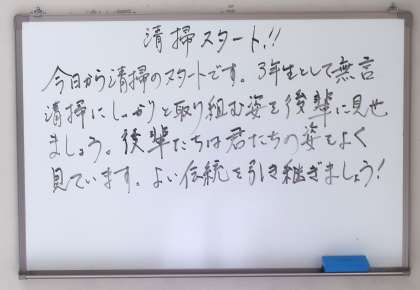 清掃スタート!!
今日から清掃のスタートです。3年生として無言
清掃にしっかりと取り組む姿を後輩に見せ
ましょう。後輩たちは君たちの姿をよく
見ています。よい伝統を引き継ぎましょう!